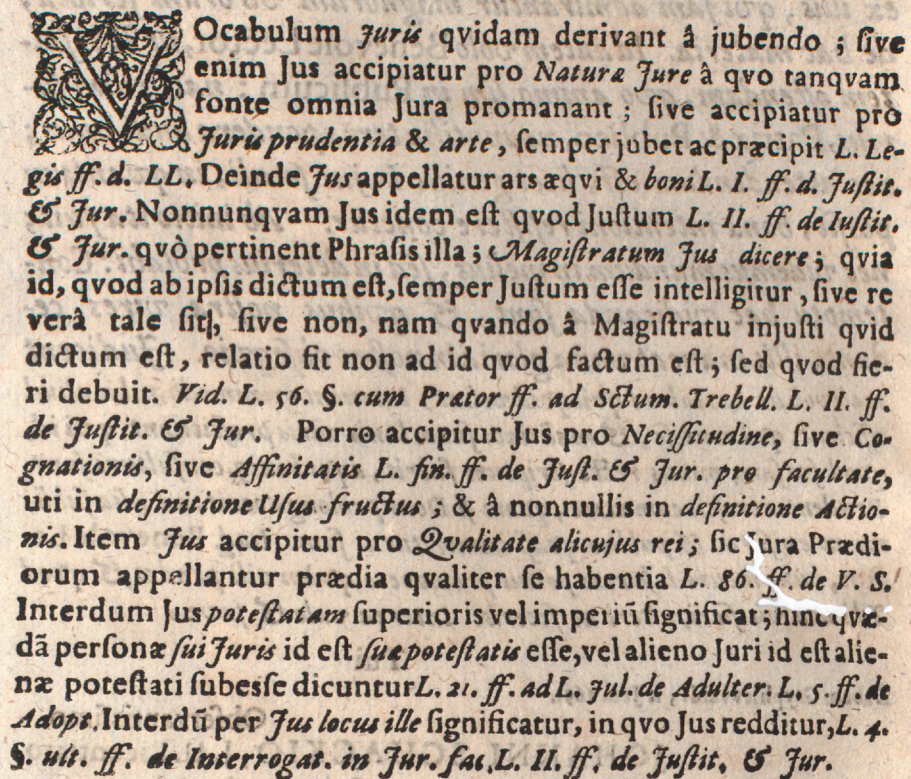 VOcabulum Juris qvidam derivant â jubendo ; ſive
enim Jus accipiatur pro Naturæ Jure â qvo tanqvam
fonte omnia Jura promanant ; ſive accipiatur pro
Jurisprudentia & arte, ſemper jubet ac præcipit L. Le-
gis ff. d. LL. Deinde Jus appellatur ars æqvi & boni L. I. ff. d. Juſtit.
& Jur. Nonnunqvam Jus idem eſt qvod Juſtum L. II. ff. de Iuſtit.
& Jur. qvò pertinent Phraſis illa ; Magiſtratum Jus dicere ; qvia
id, qvod ab ipſis dictum eſt, ſemper Juſtum eſſe intelligitur, ſive re
verâ tale ſit, ſive non, nam qvando â Magiſtratu injuſti qvid
dictum eſt, relatio fit non ad id qvod factum eſt ; ſed qvod fie-
ri debuit. Vid. L. 56. §. cum Prætor ff. ad Sctum. Trebell. L. II. ff.
de Juſtit. & Jur. Porro accipitur Jus pro Neciſſitudine, ſive Co-
gnationis, ſive Affinitatis L. fin. ff. de Juſt. & Jur. pro facultate,
uti in definitione Uſus fructus ; & â nonnullis in definitione Actio-
nis. Item Jus accipitur pro Qvalitate alicujus rei ; ſic Jura Prædi-
orum appellantur prædia qvaliter ſe habentia L. 86. ff. de V. S.
Interdum Jus poteſtatam ſuperioris vel imperiũ ſignificat ; hinc qvæ-
dã perſonæ ſui Juris id eſt ſuæ poteſtatis eſſe, vel alieno Juri id eſt alie-
næ poteſtati ſubesſe dicuntur L. 21. ff. ad L. Jul. de Adulter. L. 5. ff. de
Adopt. Interdũ per Jus locus ille ſignificatur, in qvo Jus redditur, L. 4.
§. ult. ff. de Interrogat. in Jur. fac. L. II. ff. de Juſtit. & Jur.